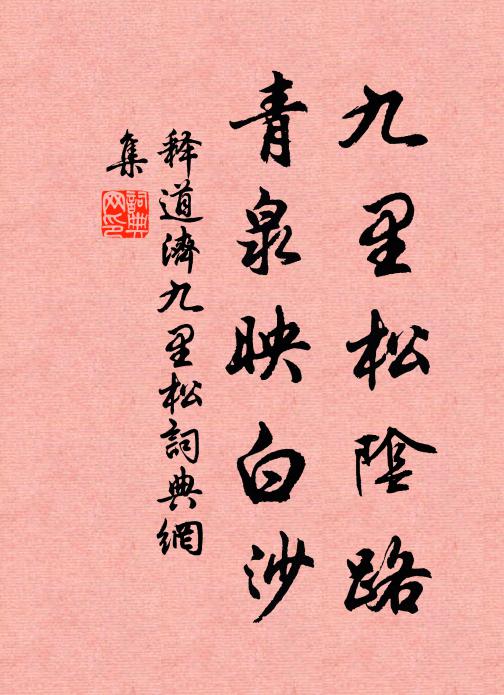 九里松陰路
青泉映白沙
释道濟九里松詞典網
集
詞典
网印